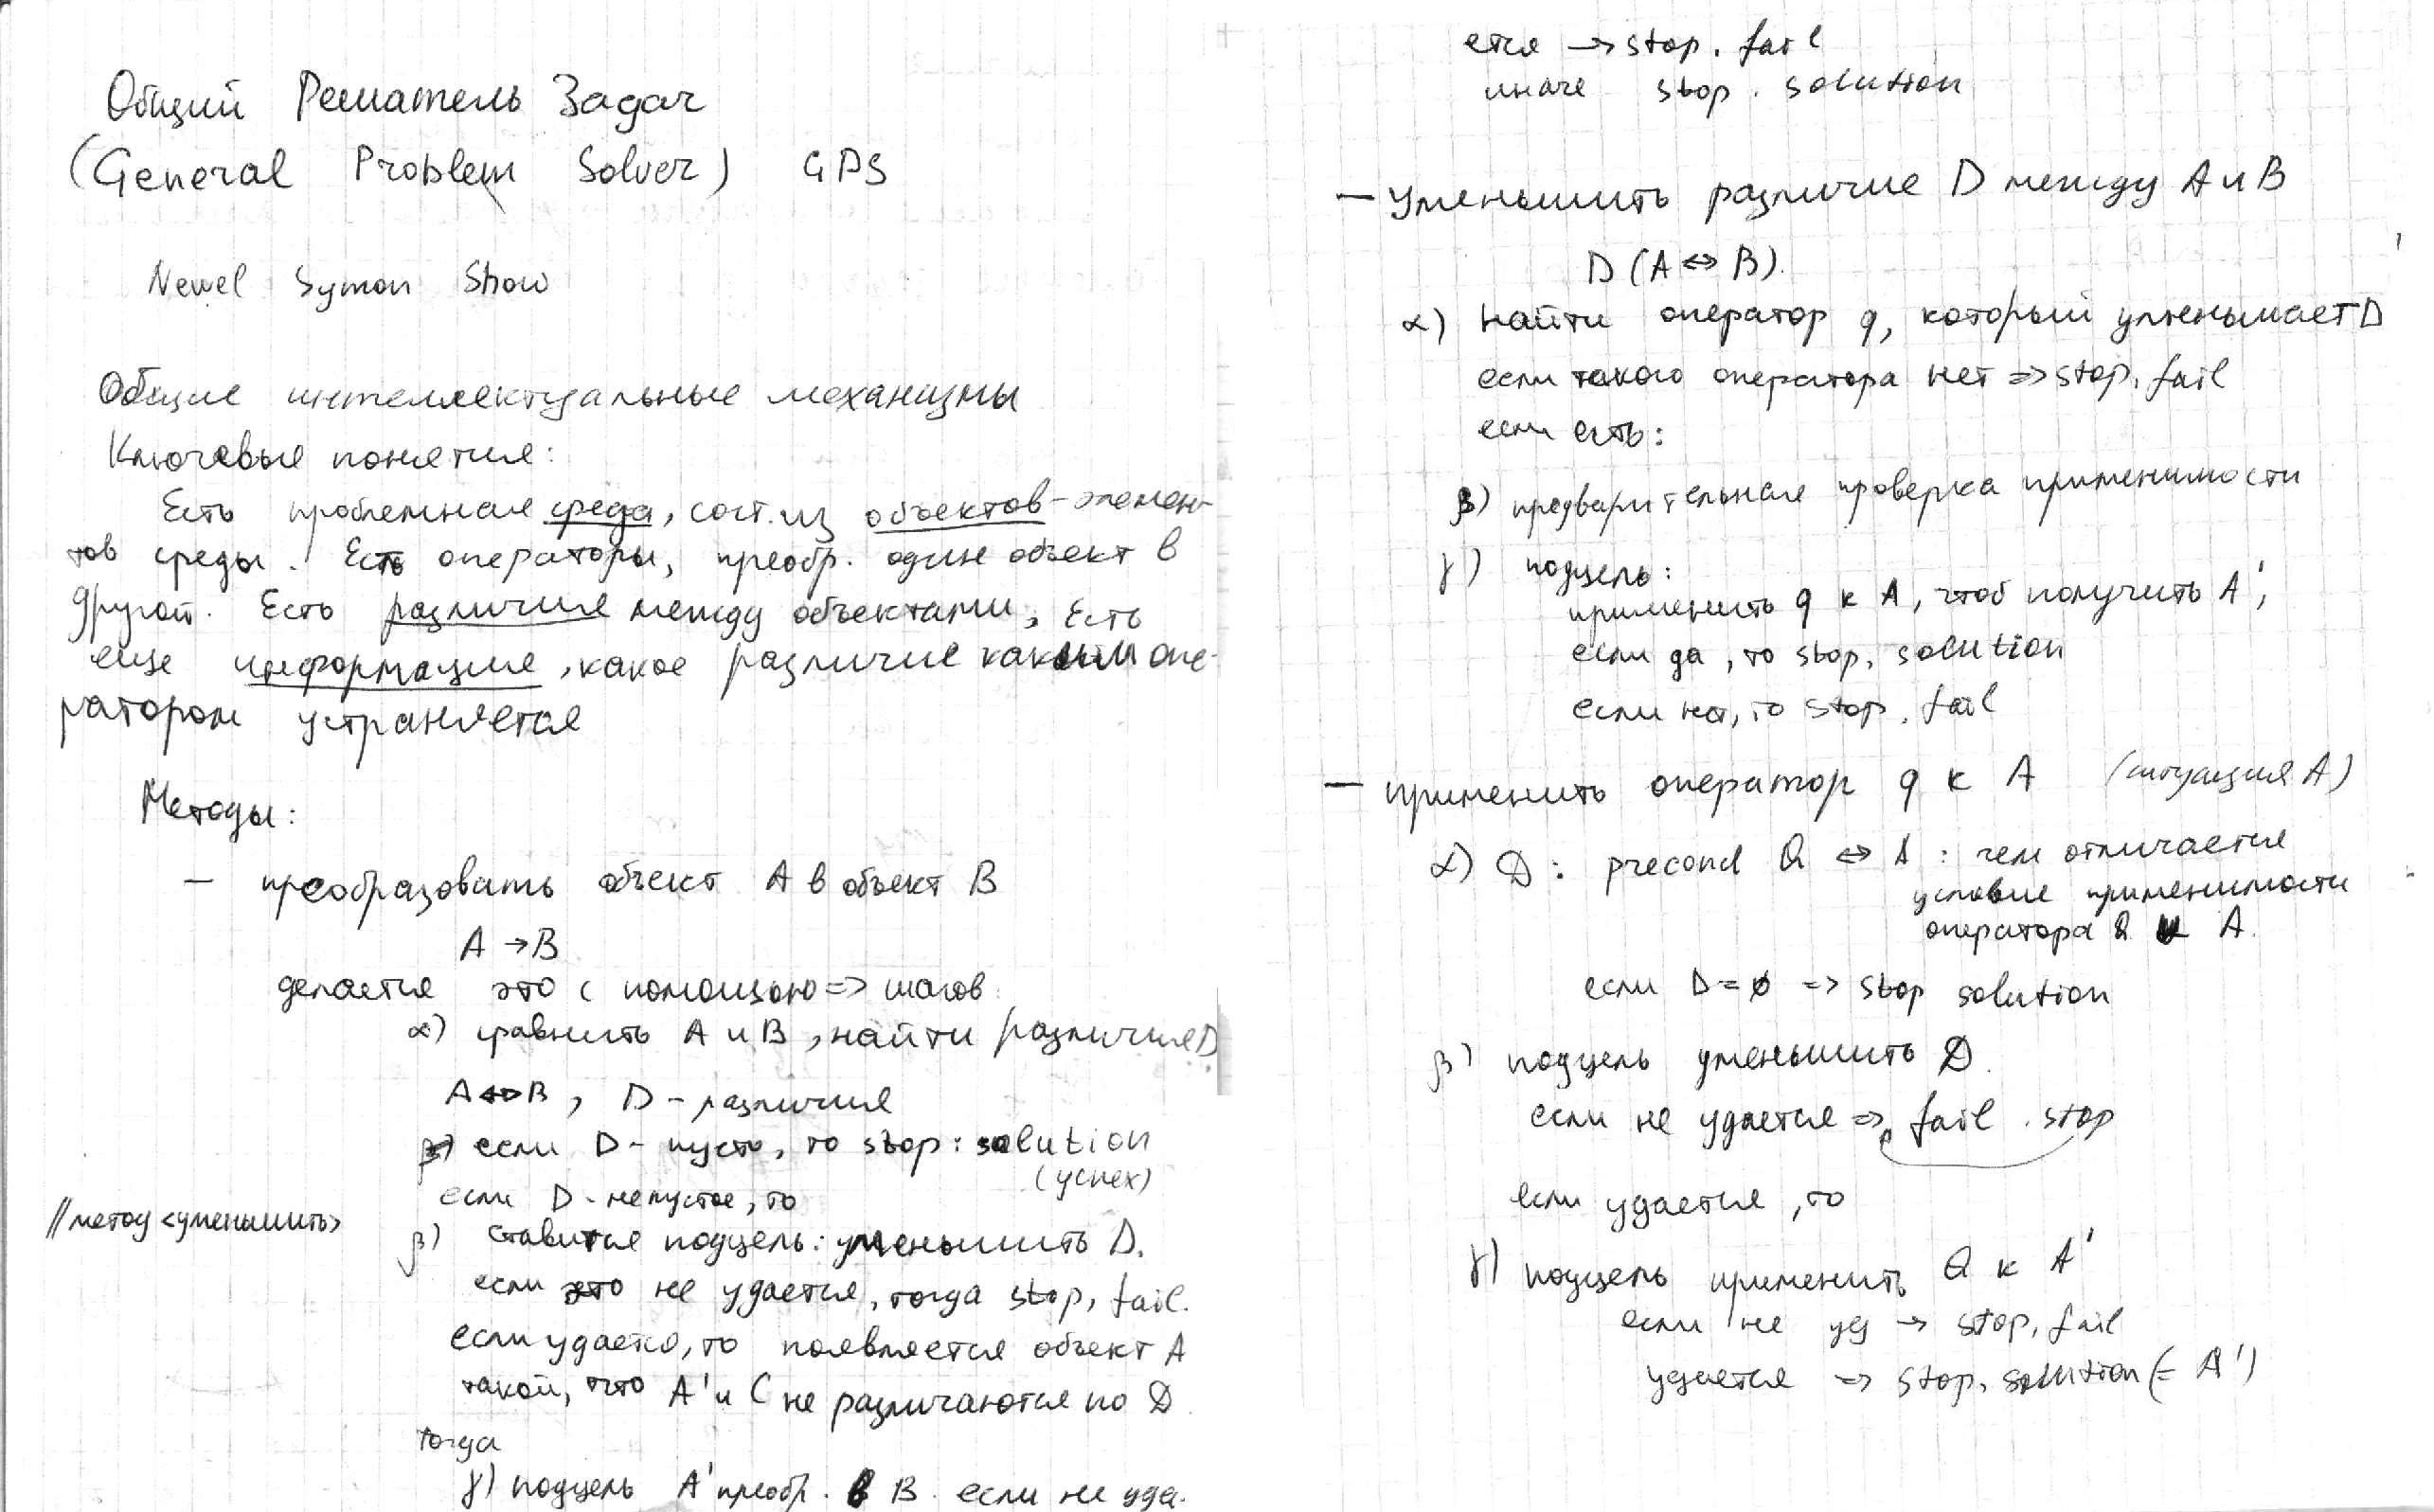 Общий Решатель Задач
(General Problem Solver) GPS
Newel Symon Show
Общие интеллектуальные механизмы
Ключевые понятия:
Есть проблемная среда, сост. из объектов - элемен-
тов среды. Есть операторы, преобр. один объект в
другой. Есть различия между объектами, Есть
еще информация, какое различие каким опе-
ратором устраняется
Методы:
— преобразовать объект A в объект B
A → B
делается это с помощью => шагов
α) сравнить A и B, найти различия D
A <=> B, D - различия
если D - пусто, то stop: solution
(успех)
если D - непустое, то
//метод <уменьшить>
β) ставится подцель: уменьшить D.
если это не удается, тогда stop, fail.
если удается, то появляется объект A
такой, что A' и C не различаются по D
тогда
γ) подцель A' преобр. в B. если не уда-
ется → stop. fail
иначе stop. solution
— Уменьшить различие D между A и B
D (A <=> B).
α) Найти оператор q, который уменьшает D
если такого оператора нет => stop. fail
если есть:
β) предварительная проверка применимости
γ) подцель:
применить q к A, чтоб получить A',
если да, то stop, solution
если нет, то stop. fail
— применить оператор q к A (ситуация A)
α) D: precond Q <=> A: чем отличается
условие применимости
оператора Q и A.
если D = ø => stop solution
β) подцель уменьшить D.
если не удается => fail. stop
если удается, то
γ) подцель применить Q к A'
если не уд → stop, fail
удается => stop. solution (= A')